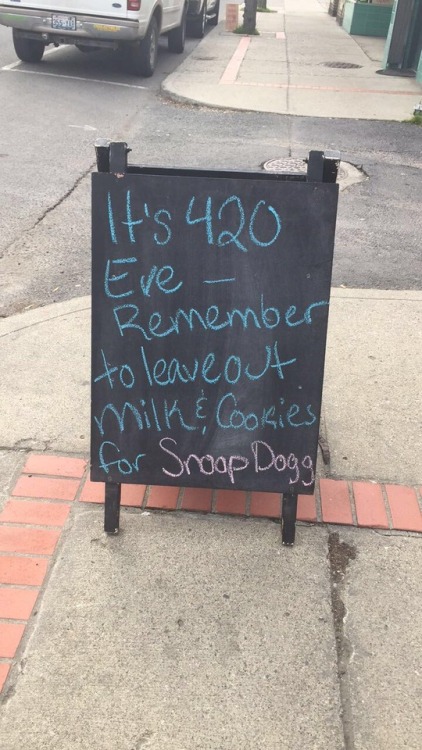 It's 420
Eve —
Remember
to leave out
Milk & Cookies
for Snoop Dogg